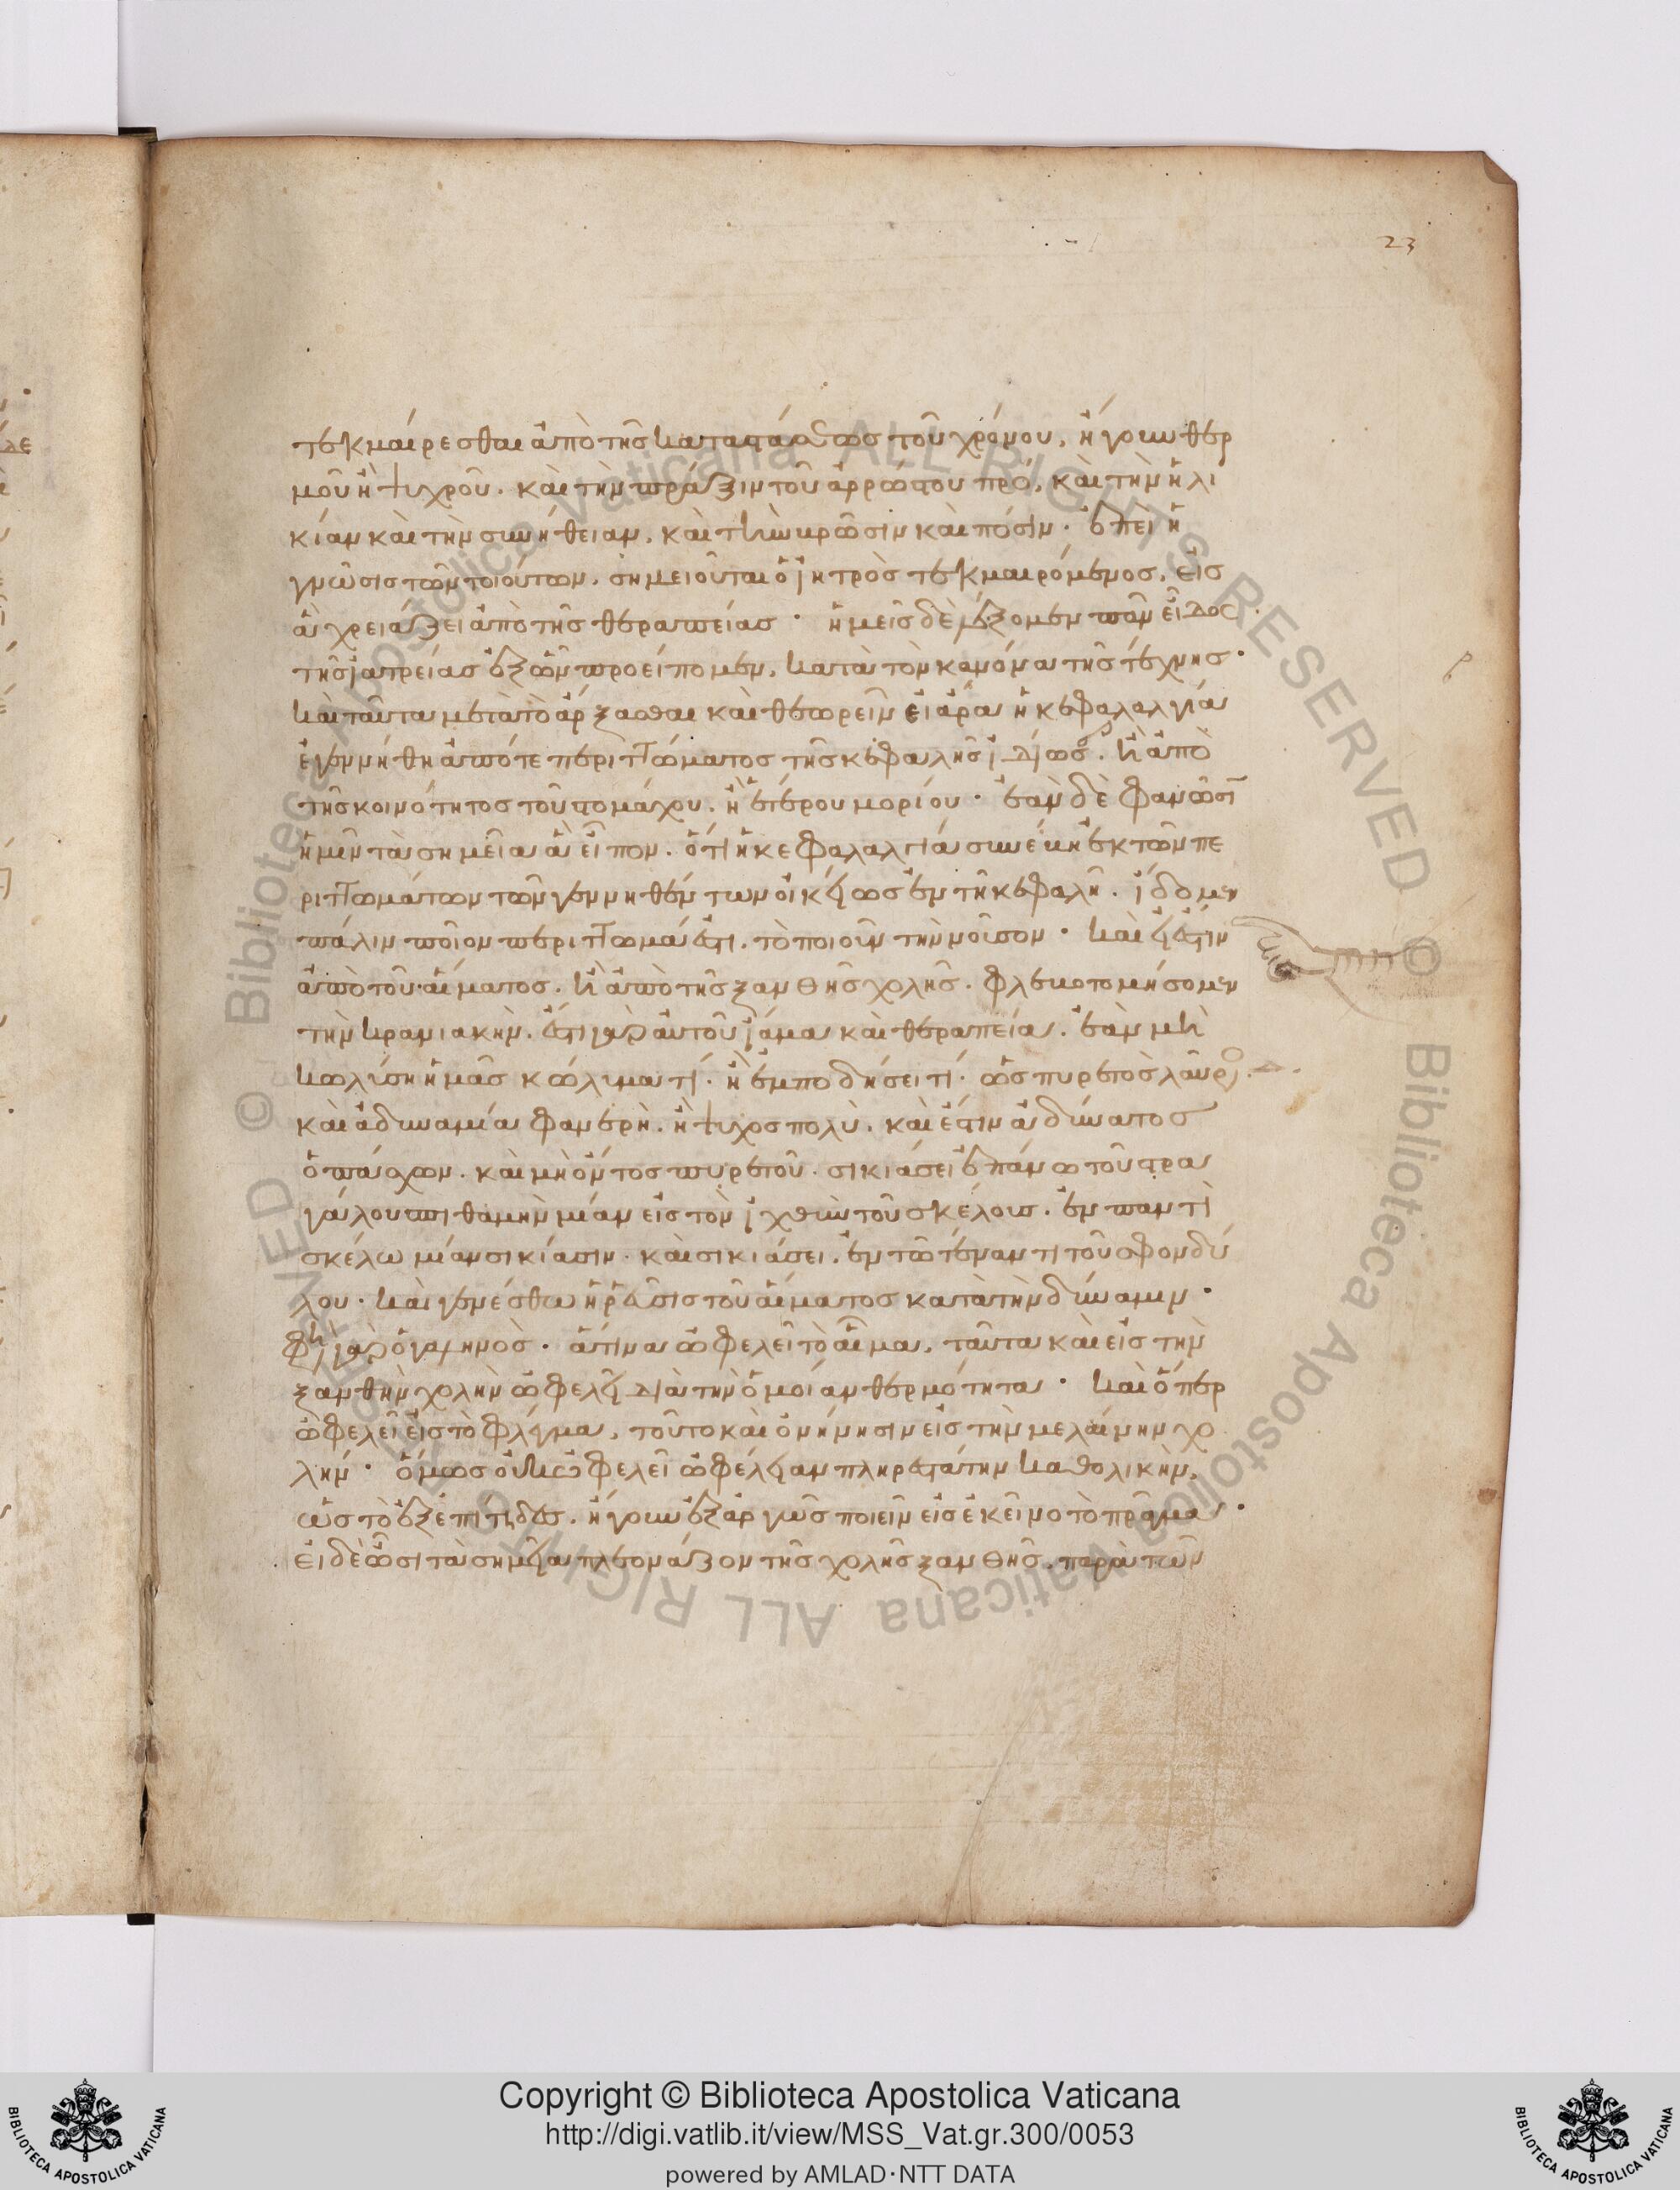 23
τεκμαίρεσθαι ἀπὸ τῆς καταστάσεως τοῦ χρόνου, ἤγουν θερ
μοῦ ἢ ψυχροῦ. καὶ τὴν πράξιν τοῦ ἀρρώστου πρό, καὶ τὴν ἡλι
κίαν καὶ τὴν συνήθειαν, καὶ τὴν κρῶσιν καὶ πόσιν. ἐπεὶ ἡ
γνῶσις τῶν τοιούτων, σημειοῦται ὁ ἰητρὸς τεκμαιρόμενος, εἰς
ἃ χρειάζει ἀπὸ τῆς θεραπείας. ἡμεῖς δὲ λέξομεν πᾶν εἶδος
τῆς ἰατρείας ἐξ ὧν προείπομεν, κατὰ τὸν κανόνα τῆς τέχνης.
καὶ ταῦτα μετὰ τὸ ἄρξασθαι καὶ θεωρεῖν εἰ ἄρα ἡ κεφαλαλγία
ἐγεννήθη ἀπότε περιττώματος τῆς κεφαλῆς ἰδίως. ἢ ἀπὸ
τῆς κοινότητος τοῦ στομάχου. ἢ ἑτέρου μορίου. ἐὰν δὲ φανῶσι
ἡμῖν τὰ σημεῖα ἃ εἶπον. ὅτι ἡ κεφαλαλγία συνέκη ἐκ τῶν πε
ριττωμάτων τῶν γεννηθέντων οἰκείως ἐν τῇ κεφαλῇ. ἴδομεν
πάλιν ποῖον περιττωμά ἐστι. τὸ ποιοῦν τὴν νοῦσον. καὶ εἰ ἔστιν
ἀπὸ τοῦ αἵματος. ἢ ἀπὸ τῆς ξανθῆς χολῆς. φλεβοτομήσομεν
τὴν κρανιακήν. ἔστι γὰρ αὐτοῦ ἴαμα καὶ θεραπεία. ἐὰν μὴ
κωλύσῃ ἡμᾶς κώλιμα τί. ἢ ἐμποδήσει τί. ὡς πυρετὸς λαῦρος.
καὶ ἀδυναμία φανερὴ. ἢ ψύχος πολὺ. καὶ ἔστιν ἀδύνατος
ὁ πάσχων. καὶ μὴ ὄντος πυρετοῦ. σικιάσει ἐπάνω τοῦ ἀστρα
γάλου σπιθαμὴν μίαν εἰς τὸν ἰχθὺν τοῦ σκέλους. ἐν παντὶ
σκέλω μίαν σικίασιν. καὶ σικιάσει. ἐν τῶ τέναντι τοῦ σφονδύ
λου. καὶ γενέσθω ἡ ῥεῦσις τοῦ αἵματος κατὰ τὴν δύναμιν.
φησὶ γὰρ ὁ γαληνὸς. ἅτινα ὠφελεῖ τὸ αἷμα, ταῦτα καὶ εἰς τὴν
ξανθὴν χολὴν ὠφελεῖ διὰ τὴν ὁμοίαν θερμότητα. καὶ ὅπερ
ὠφελεῖ εἰς τὸ φλέγμα, τοῦτο καὶ ὀνήνησιν εἰς τὴν μελαίνην χο
λήν. ὅμως οὐκ ὠφελεῖ ὠφέλειαν πληρεστάτην καθολικὴν,
ὡς τὸ ἐξεπίτιδες. ἤγουν ἐξ ἀργῶς ποιεῖν εἰς ἐκεῖνο τὸ πρᾶγμα.
εἰ δὲ ὦσι τὰ σημεῖα πλεονάζον τῆς χολῆς ξανθῆς. παρὰ τῶν
Copyright © Biblioteca Apostolica Vaticana
http://digi.vatlib.it/view/MSS_Vat.gr.300/0053
powered by AMLAD·NTT DATA